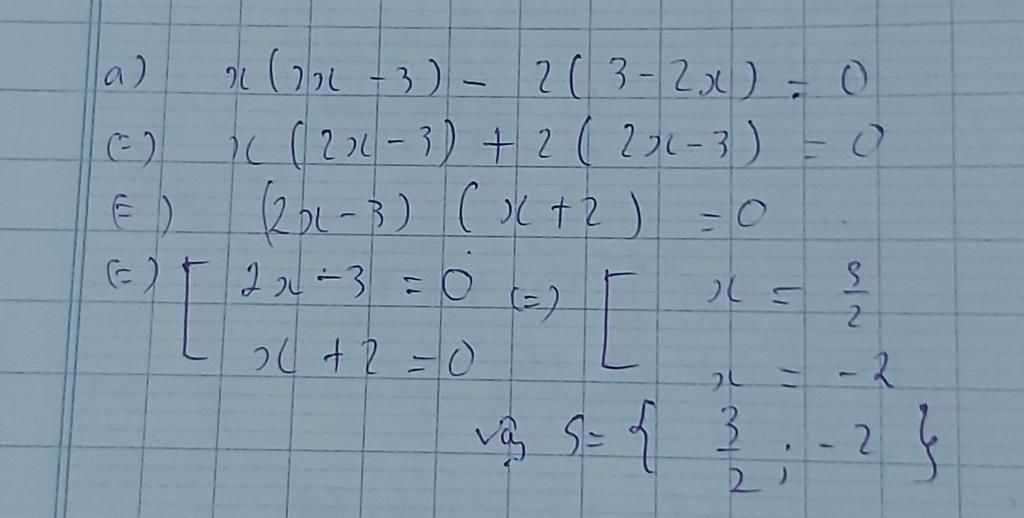 a) x(2x - 3) - 2(3 - 2x) = 0
(=) x(2x - 3) + 2(2x - 3) = 0
(=) (2x - 3)(x + 2) = 0
(=) [ 2x - 3 = 0 (=) [ x = 3/2
x + 2 = 0 x = -2
vậy S = { 3/2 ; -2 }